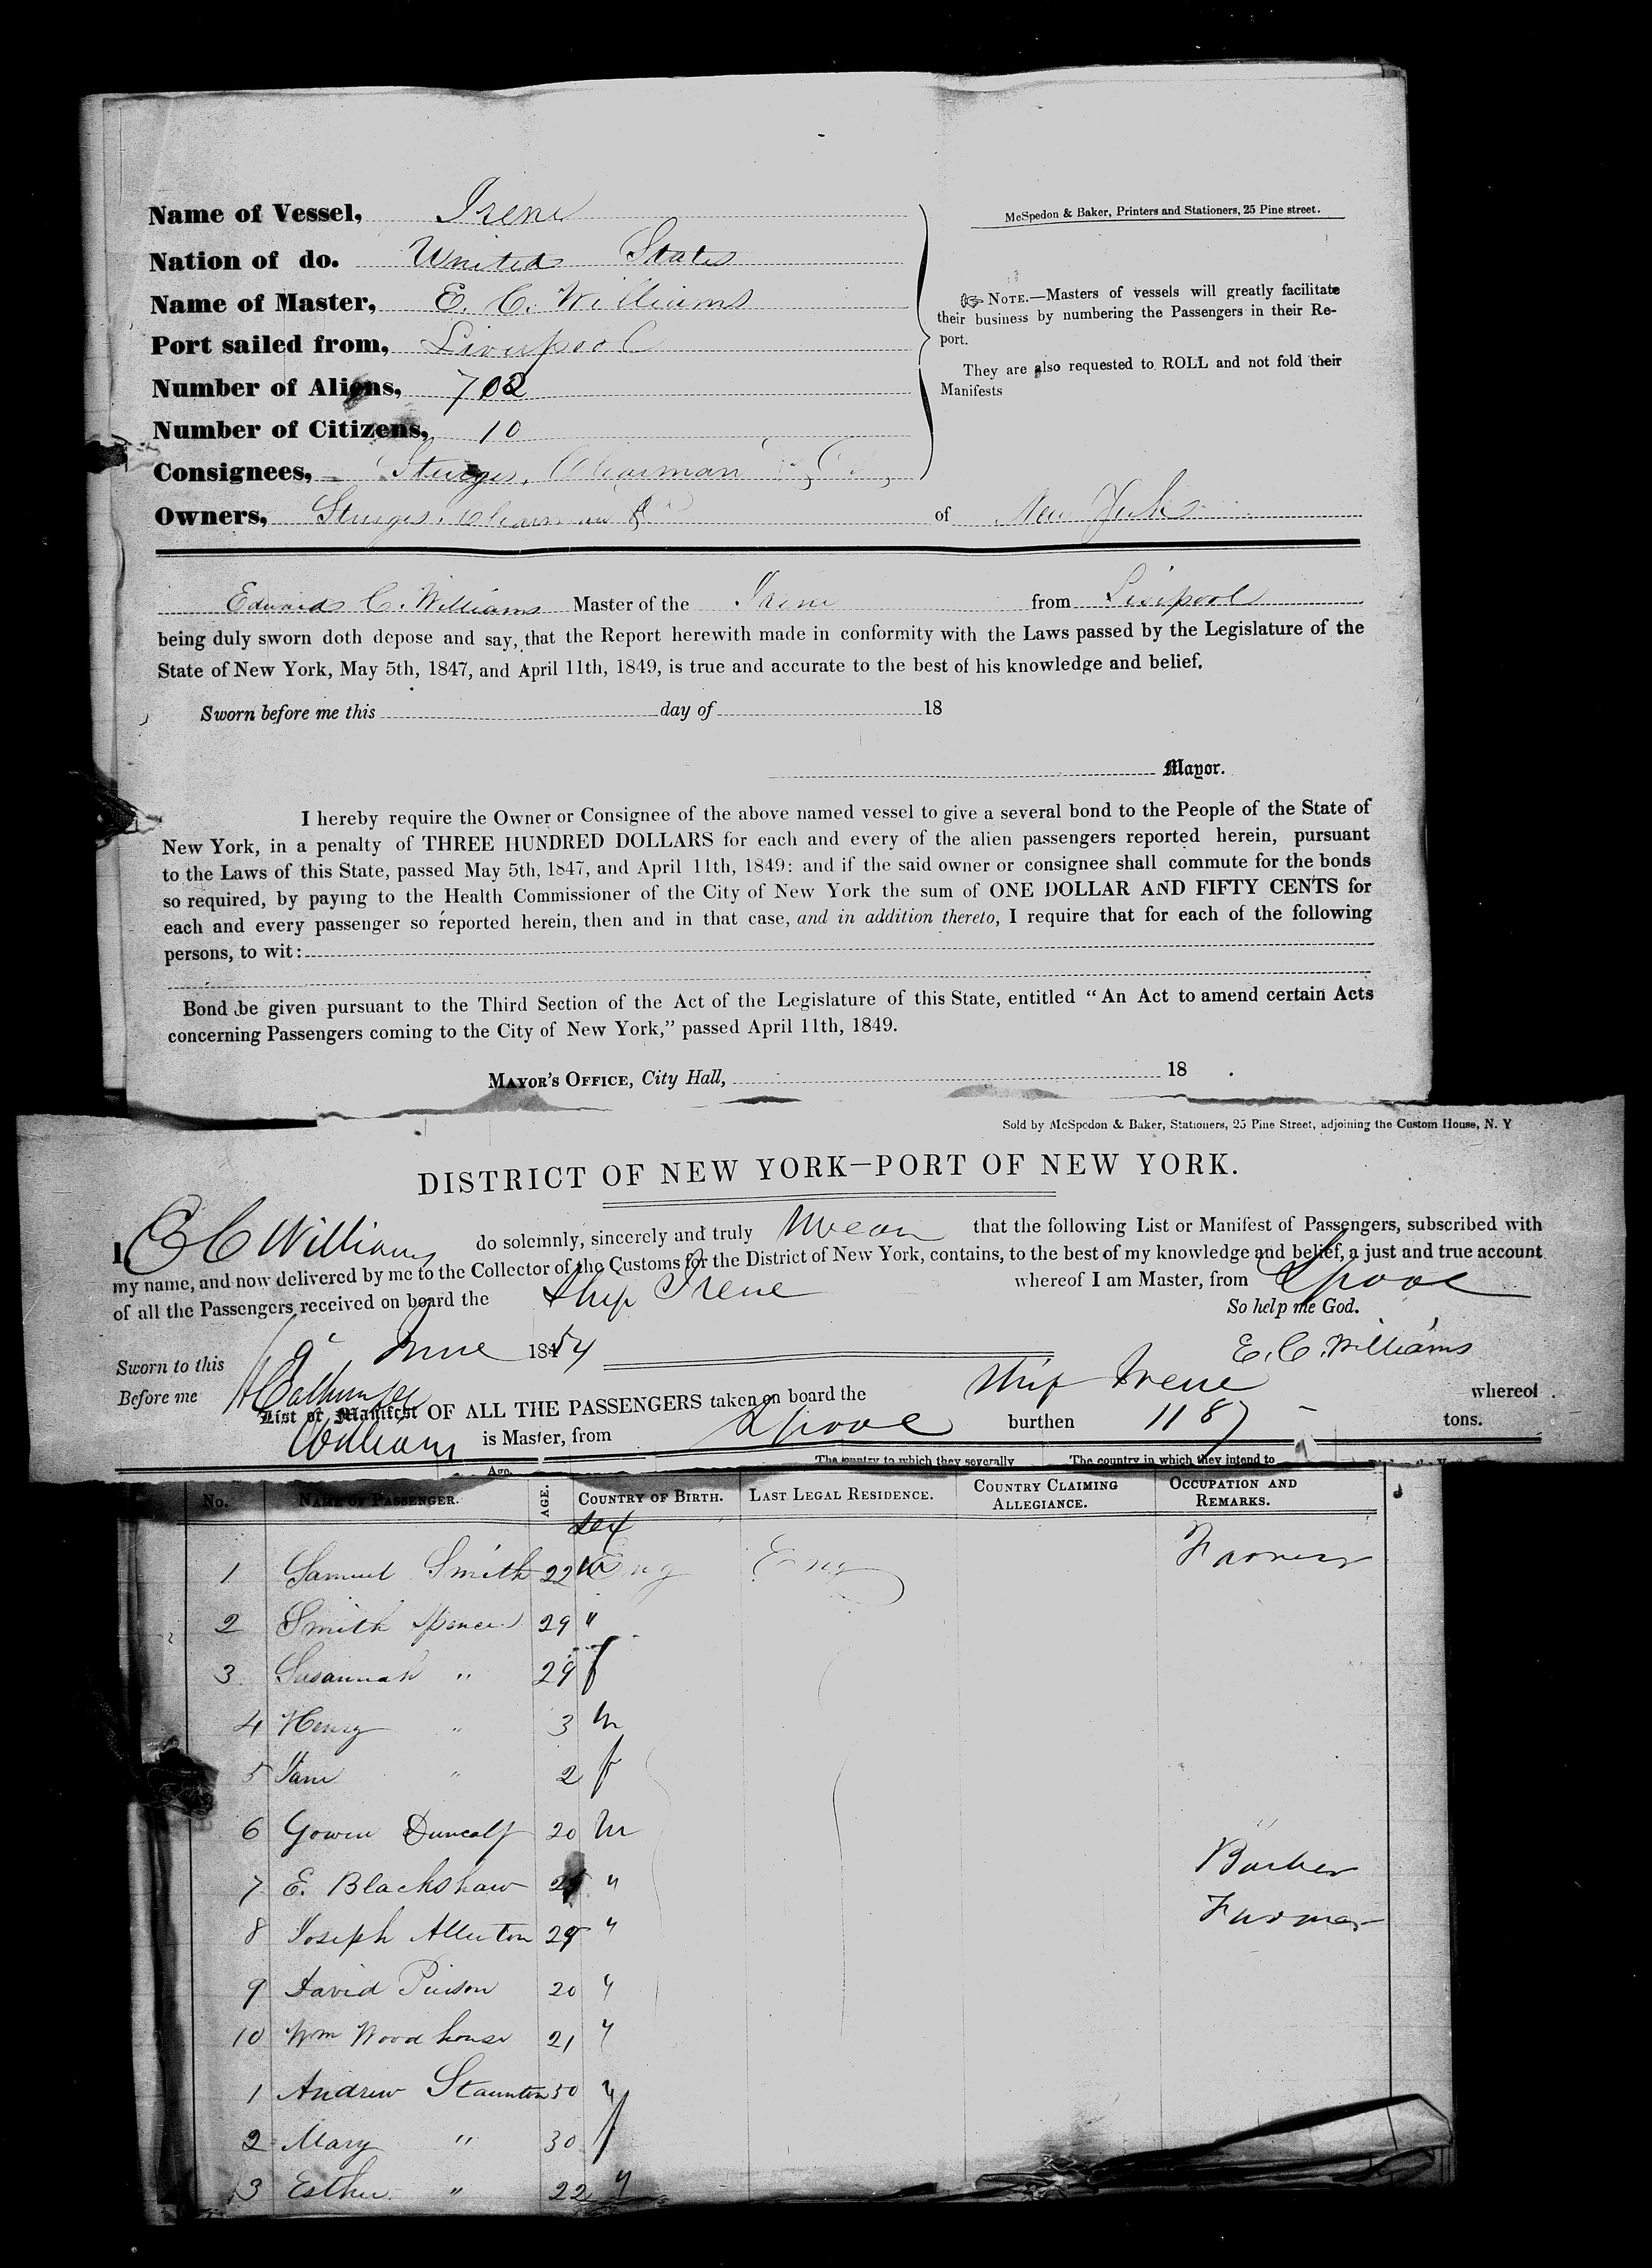 Name of Vessel, Irene
McSpedon & Baker, Printers and Stationers, 25 Pine street.
Nation of do. United States
Name of Master, E. C. Williams
NOTE.—Masters of vessels will greatly facilitate
their business by numbering the Passengers in their Re-
port.
Port sailed from, Liverpool
They are also requested to ROLL and not fold their
Manifests
Number of Aliens, 702
Number of Citizens, 10
Consignees, Sturges, Clearman & Co
Owners, Sturges, Clearman & Co of New York
Edward C. Williams Master of the Irene from Liverpool
being duly sworn doth depose and say, that the Report herewith made in conformity with the Laws passed by the Legislature of the
State of New York, May 5th, 1847, and April 11th, 1849, is true and accurate to the best of his knowledge and belief.
Sworn before me this day of 18
Mayor.
I hereby require the Owner or Consignee of the above named vessel to give a several bond to the People of the State of
New York, in a penalty of THREE HUNDRED DOLLARS for each and every of the alien passengers reported herein, pursuant
to the Laws of this State, passed May 5th, 1847, and April 11th, 1849: and if the said owner or consignee shall commute for the bonds
so required, by paying to the Health Commissioner of the City of New York the sum of ONE DOLLAR AND FIFTY CENTS for
each and every passenger so reported herein, then and in that case, and in addition thereto, I require that for each of the following
persons, to wit:
Bond be given pursuant to the Third Section of the Act of the Legislature of this State, entitled "An Act to amend certain Acts
concerning Passengers coming to the City of New York," passed April 11th, 1849.
MAYOR'S OFFICE, City Hall, 18
Sold by McSpedon & Baker, Stationers, 25 Pine Street, adjoining the Custom House, N. Y
DISTRICT OF NEW YORK—PORT OF NEW YORK.
I E C Williams do solemnly, sincerely and truly swear that the following List or Manifest of Passengers, subscribed with
my name, and now delivered by me to the Collector of the Customs for the District of New York, contains, to the best of my knowledge and belief, a just and true account
of all the Passengers received on board the Ship Irene whereof I am Master, from Lpool
So help me God.
Sworn to this June 1854
E. C. Williams
Before me
List or Manifest OF ALL THE PASSENGERS taken on board the Ship Irene whereof
Williams is Master, from Lpool burthen 1187 tons.
Age. The country to which they severally The country in which they intend to
No. NAME OF PASSENGER. AGE. COUNTRY OF BIRTH. LAST LEGAL RESIDENCE. COUNTRY CLAIMING ALLEGIANCE. OCCUPATION AND REMARKS.
Sex
1 Samuel Smith 22 m Eng Eng Farmer
2 Smith Spencer 29 "
3 Susannah " 29 f
4 Henry " 3 m
5 Jane " 2 f
6 Gowen Duncalf 20 m "
7 E. Blackshaw " Barber
8 Joseph Allerton 29 " Farmer
9 David 20 "
10 Wm Woodhouse 21 "
1 Andrew Staunton 50 "
2 Mary " 30 f
13 Esther " 22 "